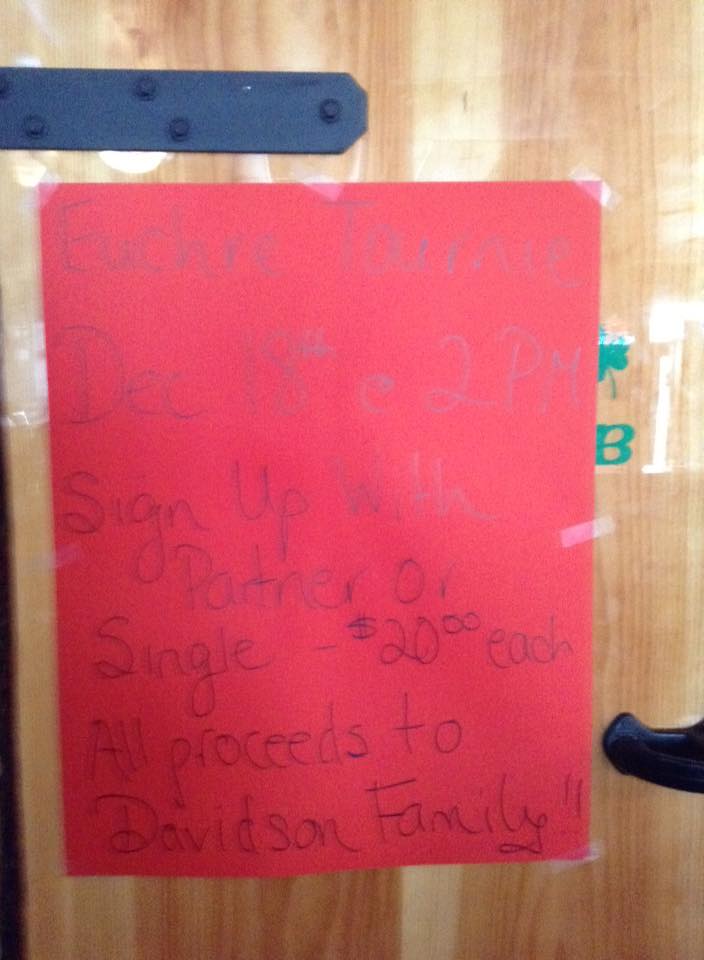 Euchre Tournie
Dec 18th @ 2PM
Sign Up With
Partner Or
Single - $20.00 each
All proceeds to
"Davidson Family"!
B